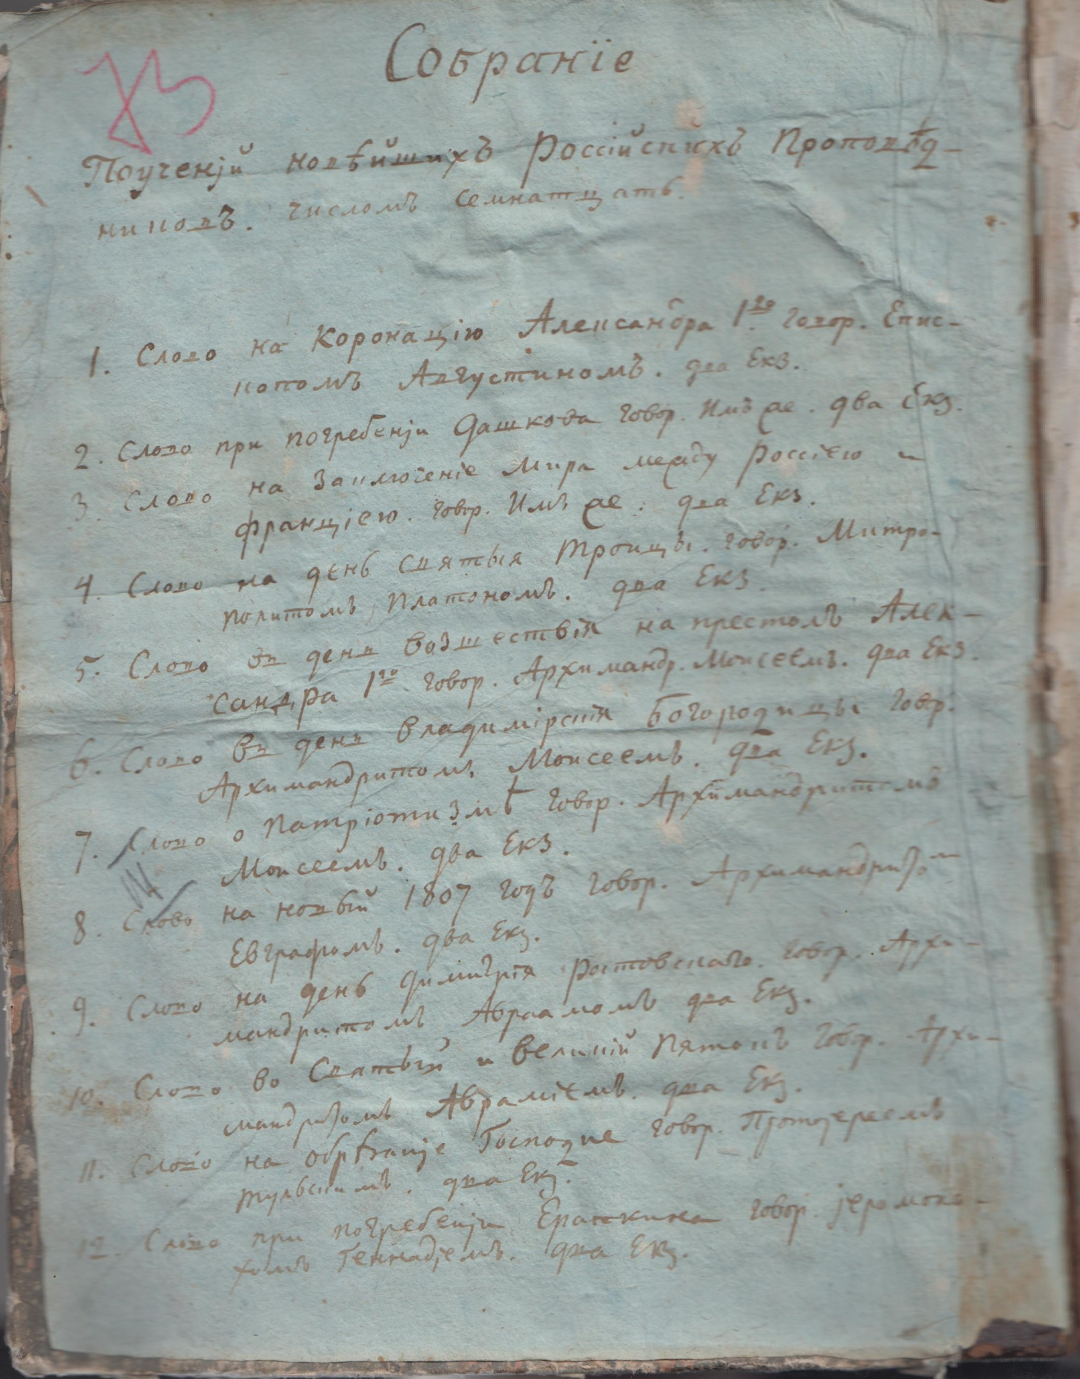 Собранїе
Поученїй новѣйшихъ Россїйскихъ Проповѣд-
никовъ. числомъ семнатцать.
1. Слово на Коронацїю Александра 1го. говор. Епис-
копомъ Августиномъ. два Екз.
2. Слово при погребенїи Дашкова говор. Имъ же. два Екз.
3. Слово на Заключенїе мира между Россїею и
францїею. говор. Имъ же. два Екз.
4. Слово на день святыя троицы. говор. Митро-
политомъ Платономъ. два Екз.
5. Слово въ день возшествїя на престолъ Алек-
сандра 1го. говор. Архимандр. Моисеемъ. два Екз.
6. Слово въ день владимїрскїя Богородицы говор.
Архимандритомъ Моисеемъ. два Екз.
7. Слово о патрїотизмѣ говор. Архимандритомъ
Моисеемъ. два Екз.
14
8. Слово на новый 1807 годъ говор. Архимандрито-
Евграфомъ. два Екз.
9. Слово на день Димитрїя Ростовскаго. говор. Архи-
мандритомъ Авраамомъ два Екз.
10. Слово во Святый и великїй Пятокъ говор. Архи-
мандритомъ Аврамїемъ. два Екз.
11. Слово на обрѣзанїе Господне говор. Протоїереемъ
тульскимъ. два Екз.
12. Слово при погребенїи Ерапкина говор. їеромона-
хомъ Геннадїемъ. два Екз.